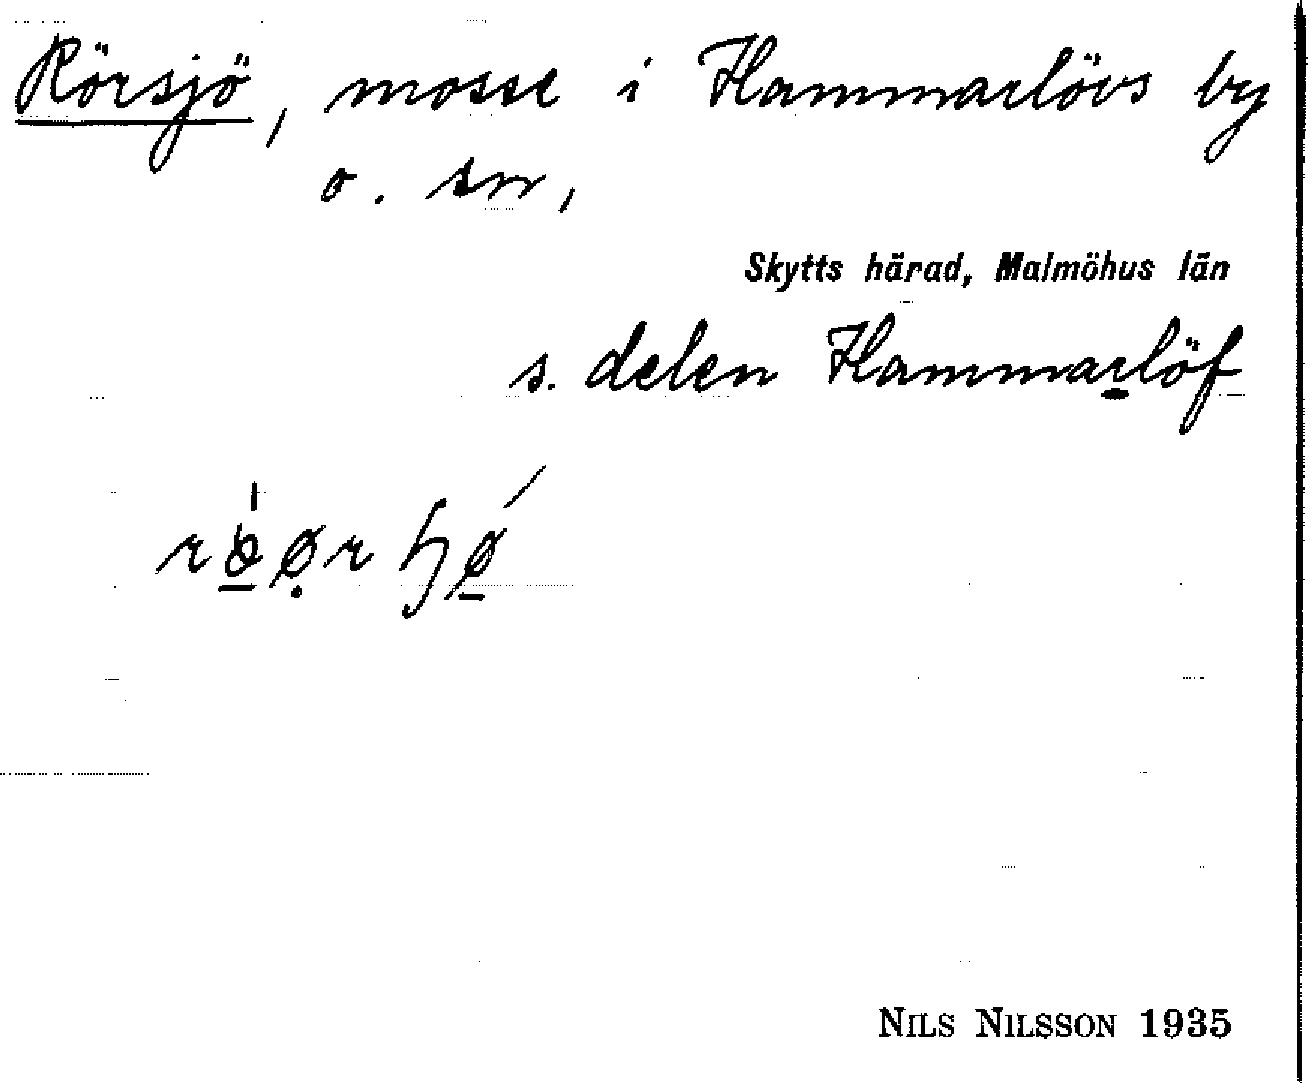 Rörsjö, mosse i Hammarlövs by
o. sn,
Skytts härad, Malmöhus län
s. delen Hammarlöf
NILS NILSSON 1935